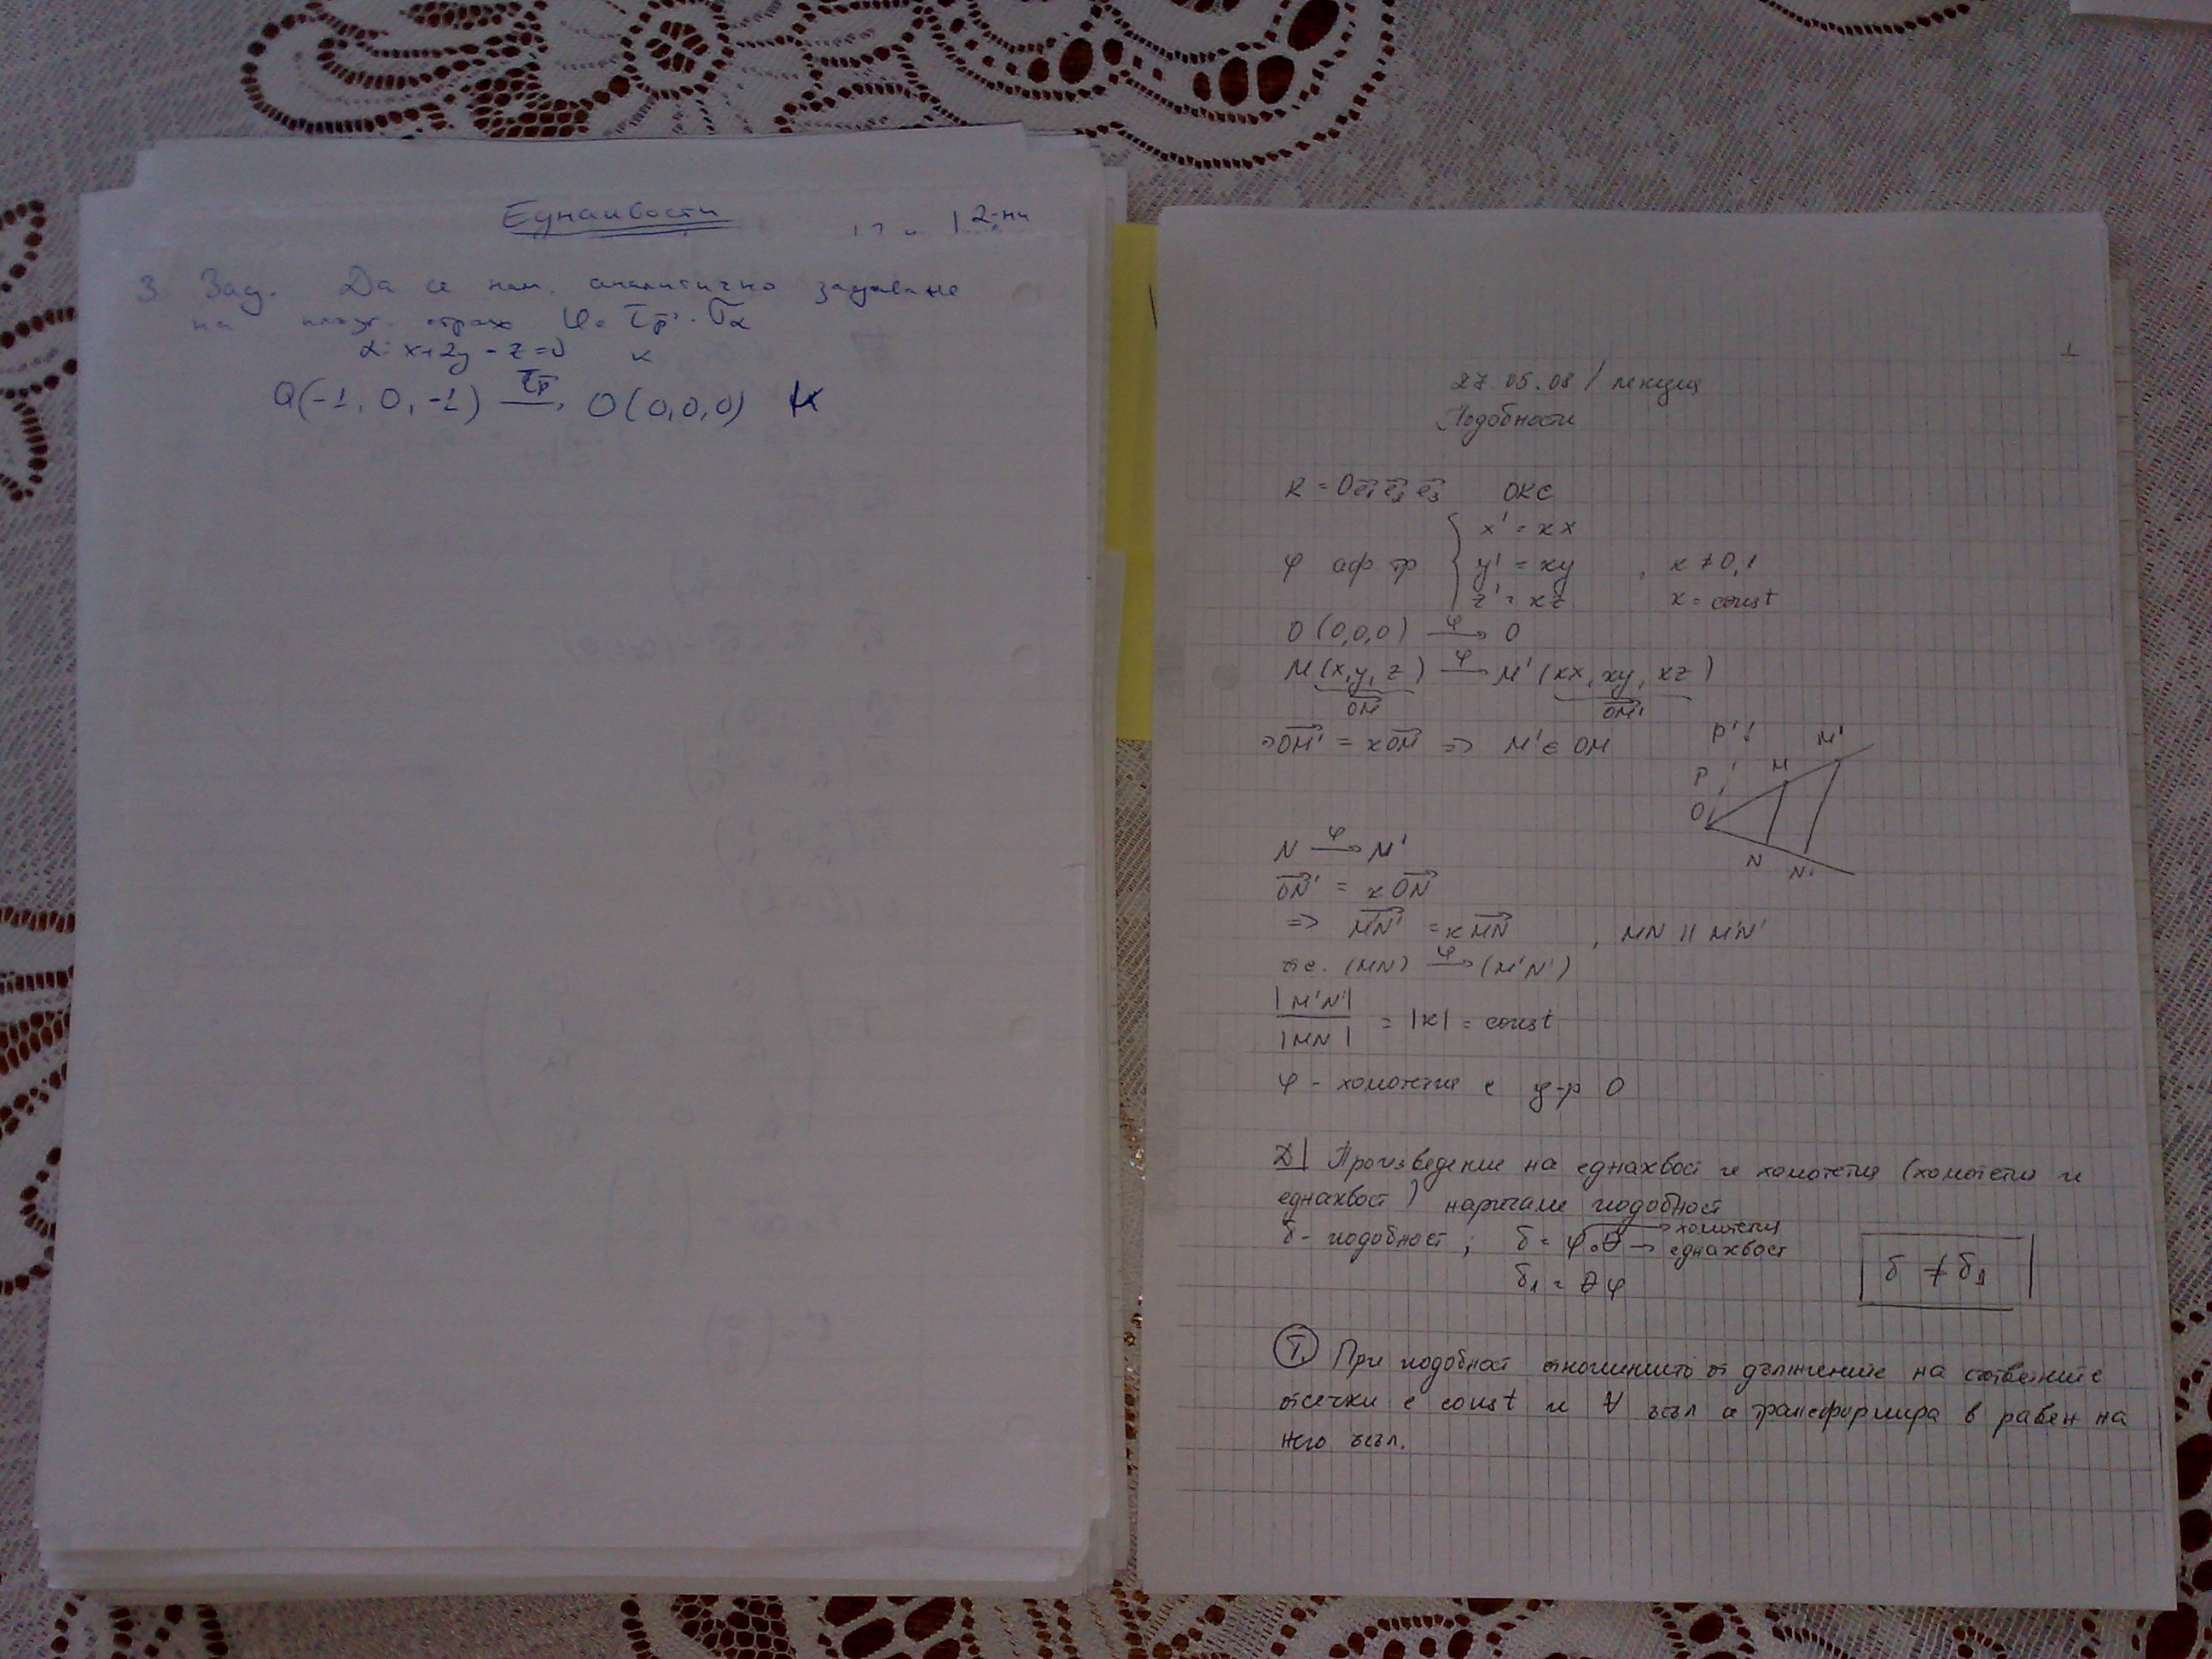 Еднаквости
2-ри
3 Зад. Да се нам. аналитично задаване
на плъзг. отраж φ = τp · σα
α: x+2y-z=0 и
Q(-1, 0, -1) τp→ O(0,0,0) K
1
27.05.08 / лекция
Подобности
K = Oe₁e₂e₃ ОКС
φ аф тр { x' = kx
y' = ky , k ≠ 0,1
z' = kz k = const
O(0,0,0) φ→ O
M(x,y,z) φ→ M'(kx, ky, kz)
OM OM'
=> OM' = kOM => M' ∈ OM
P' M'
P M
O
N N'
N φ→ N'
ON' = kON
=> M'N' = kMN , MN || M'N'
т.е. (MN) φ→ (M'N')
|M'N'|
/|MN| = |k| = const
φ - хомотетия с ц-р O
Д| Произведение на еднаквост и хомотетия (хомотетия и
еднаквост) наричаме подобност
δ - подобност ; δ = φ∘θ → хомотетия
→ еднаквост
δ₁ = θφ
δ ≠ δ₁
Т. При подобност отношението от дължините на съответните
отсечки е const и ∀ ъгъл се трансформира в равен на
него ъгъл.